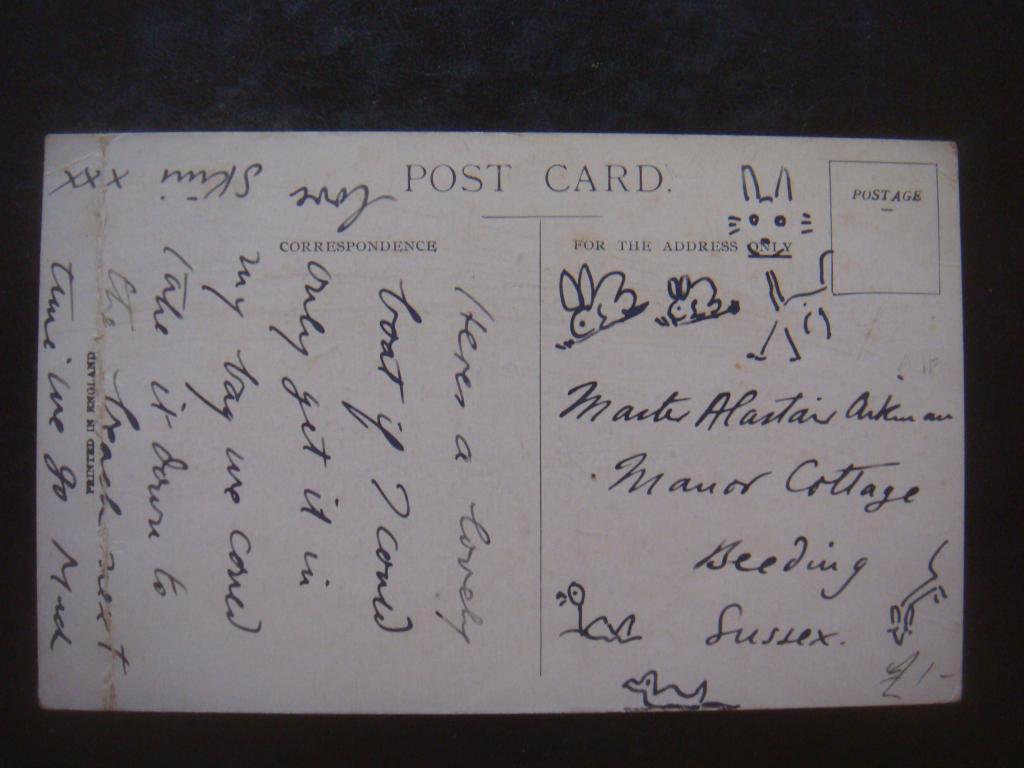 POST CARD.
POSTAGE
CORRESPONDENCE
FOR THE ADDRESS ONLY
Heres a lovely
boat if I could
only get it in
my bag we could
take it down to
the beach next
time we go Mud
love
x
xx
Master Alastair Aikman
Manor Cottage
Beeding
Sussex.
PRINTED IN ENGLAND
£1-